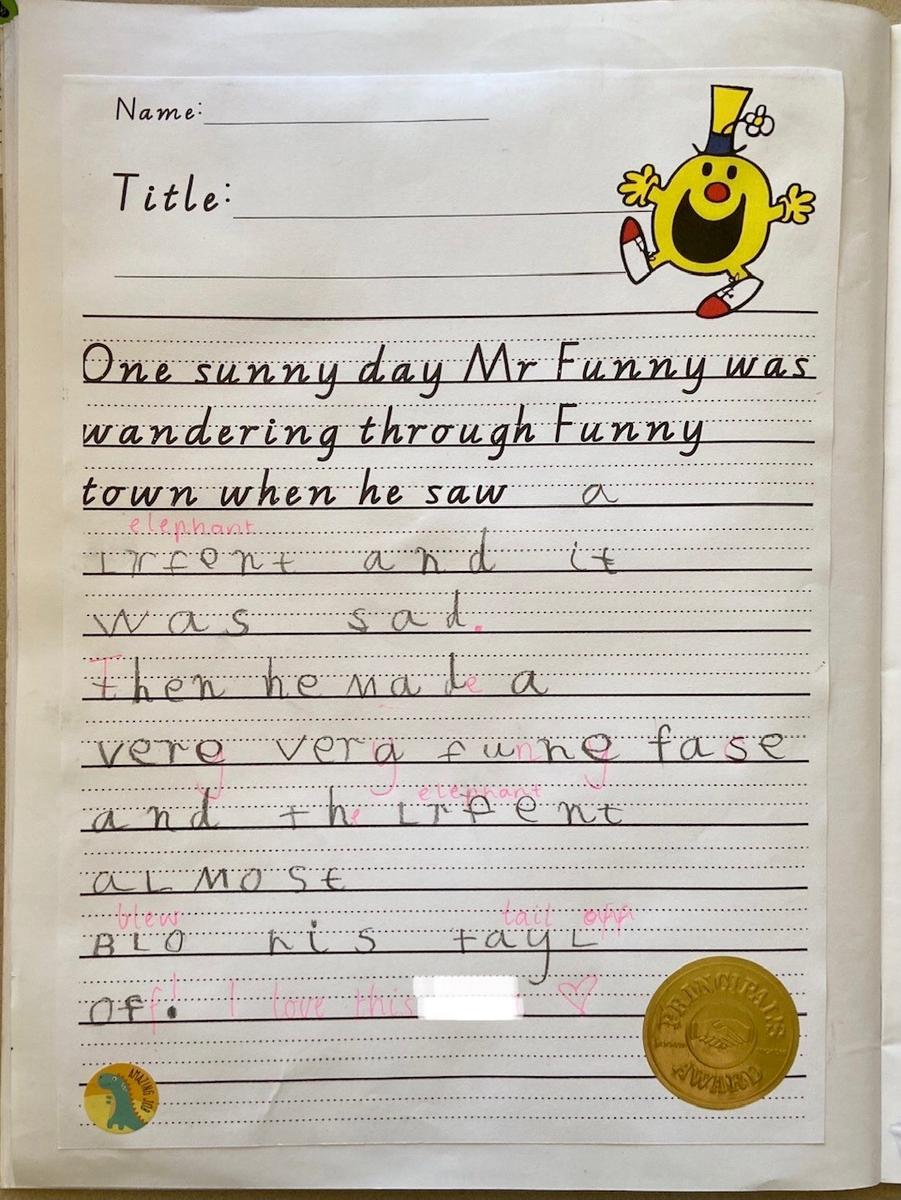 Name:
Title:
One sunny day Mr Funny was
wandering through Funny
town when he saw a
elephant
Lrfent and it
was sad.
Then he made a
very very funny fase
elephant
and the Lrfent
aLMost
blew tail off
BLO his tayL
off! I love this
AMAZING JOB
PRINCIPAL'S
AWARD